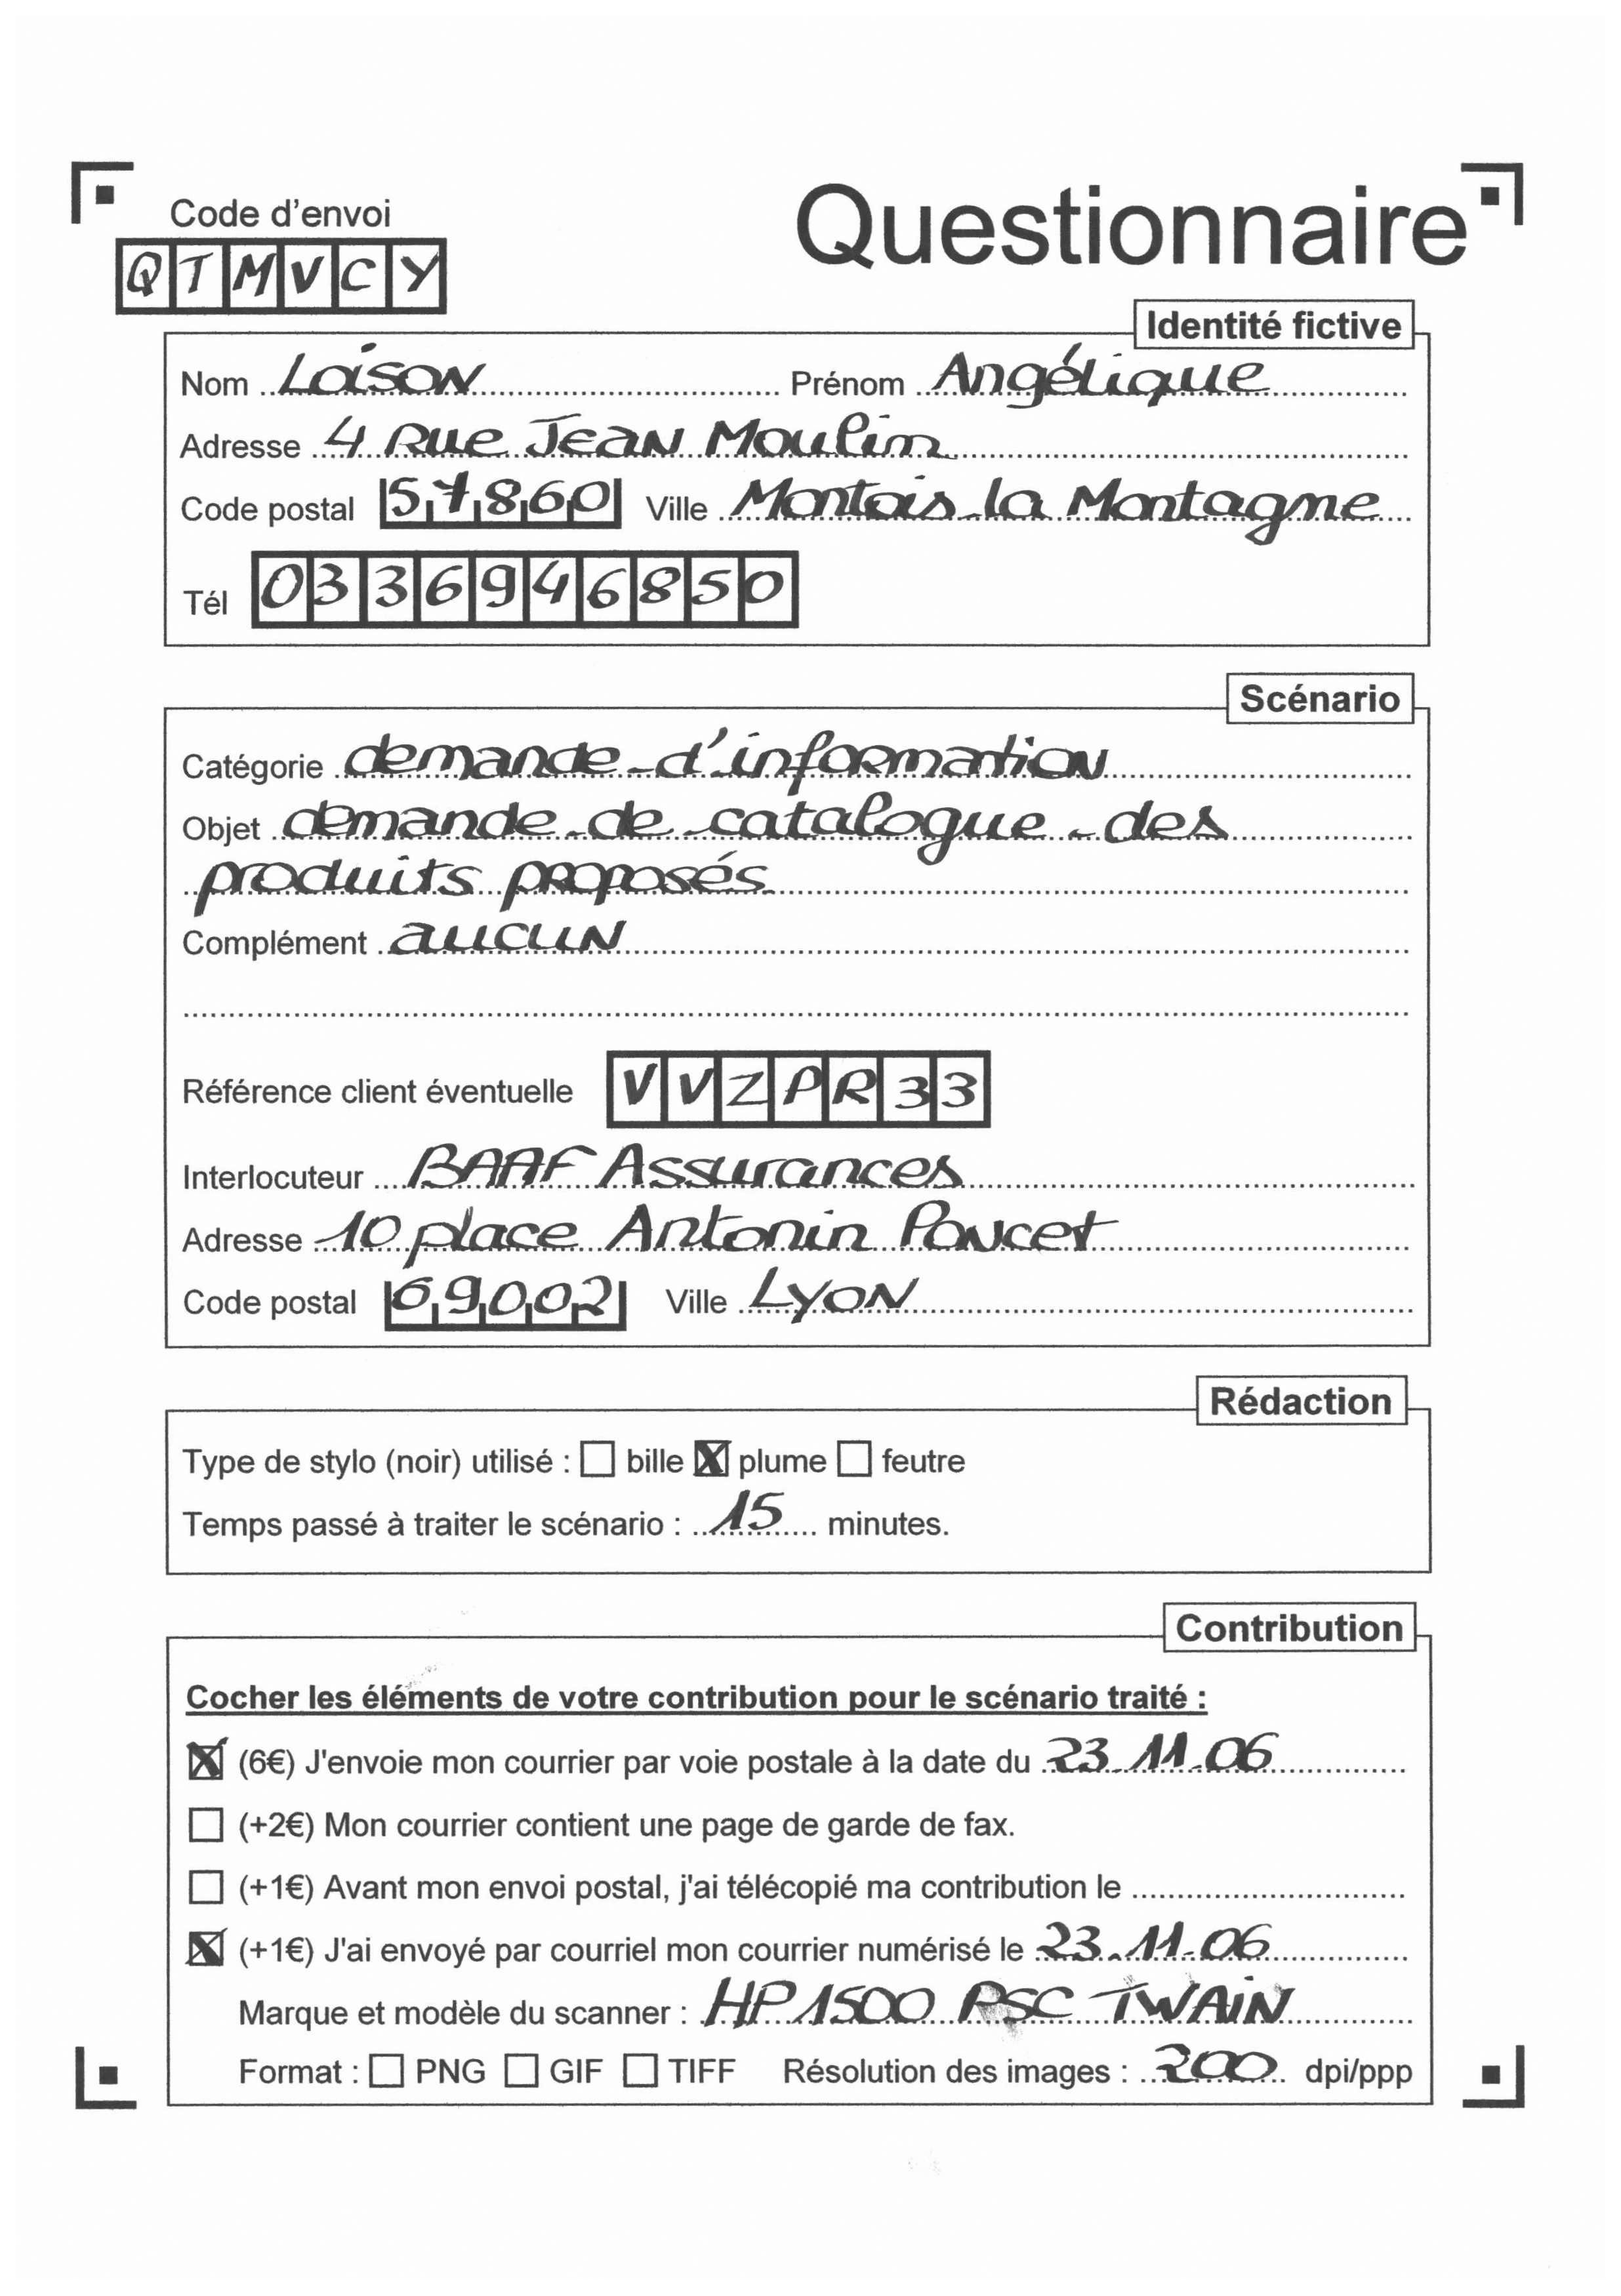 Code d'envoi
Questionnaire
QTMVCY
Identité fictive
Nom Loison Prénom Angélique
Adresse 4 Rue Jean Moulin
Code postal 57860 Ville Montois la Montagne
Tél 0336946850
Scénario
Catégorie demande d'information
Objet demande de catalogue des
produits proposés
Complément aucun
Référence client éventuelle VVZPR33
Interlocuteur BAAF Assurances
Adresse 10 place Antonin Poncet
Code postal 69002 Ville Lyon
Rédaction
Type de stylo (noir) utilisé : ☐ bille ☒ plume ☐ feutre
Temps passé à traiter le scénario : 15 minutes.
Contribution
Cocher les éléments de votre contribution pour le scénario traité :
☒ (6€) J'envoie mon courrier par voie postale à la date du 23.11.06
☐ (+2€) Mon courrier contient une page de garde de fax.
☐ (+1€) Avant mon envoi postal, j'ai télécopié ma contribution le
☒ (+1€) J'ai envoyé par courriel mon courrier numérisé le 23.11.06
Marque et modèle du scanner : HP 1500 PSC TWAIN
Format : ☐ PNG ☐ GIF ☐ TIFF Résolution des images : 200 dpi/ppp